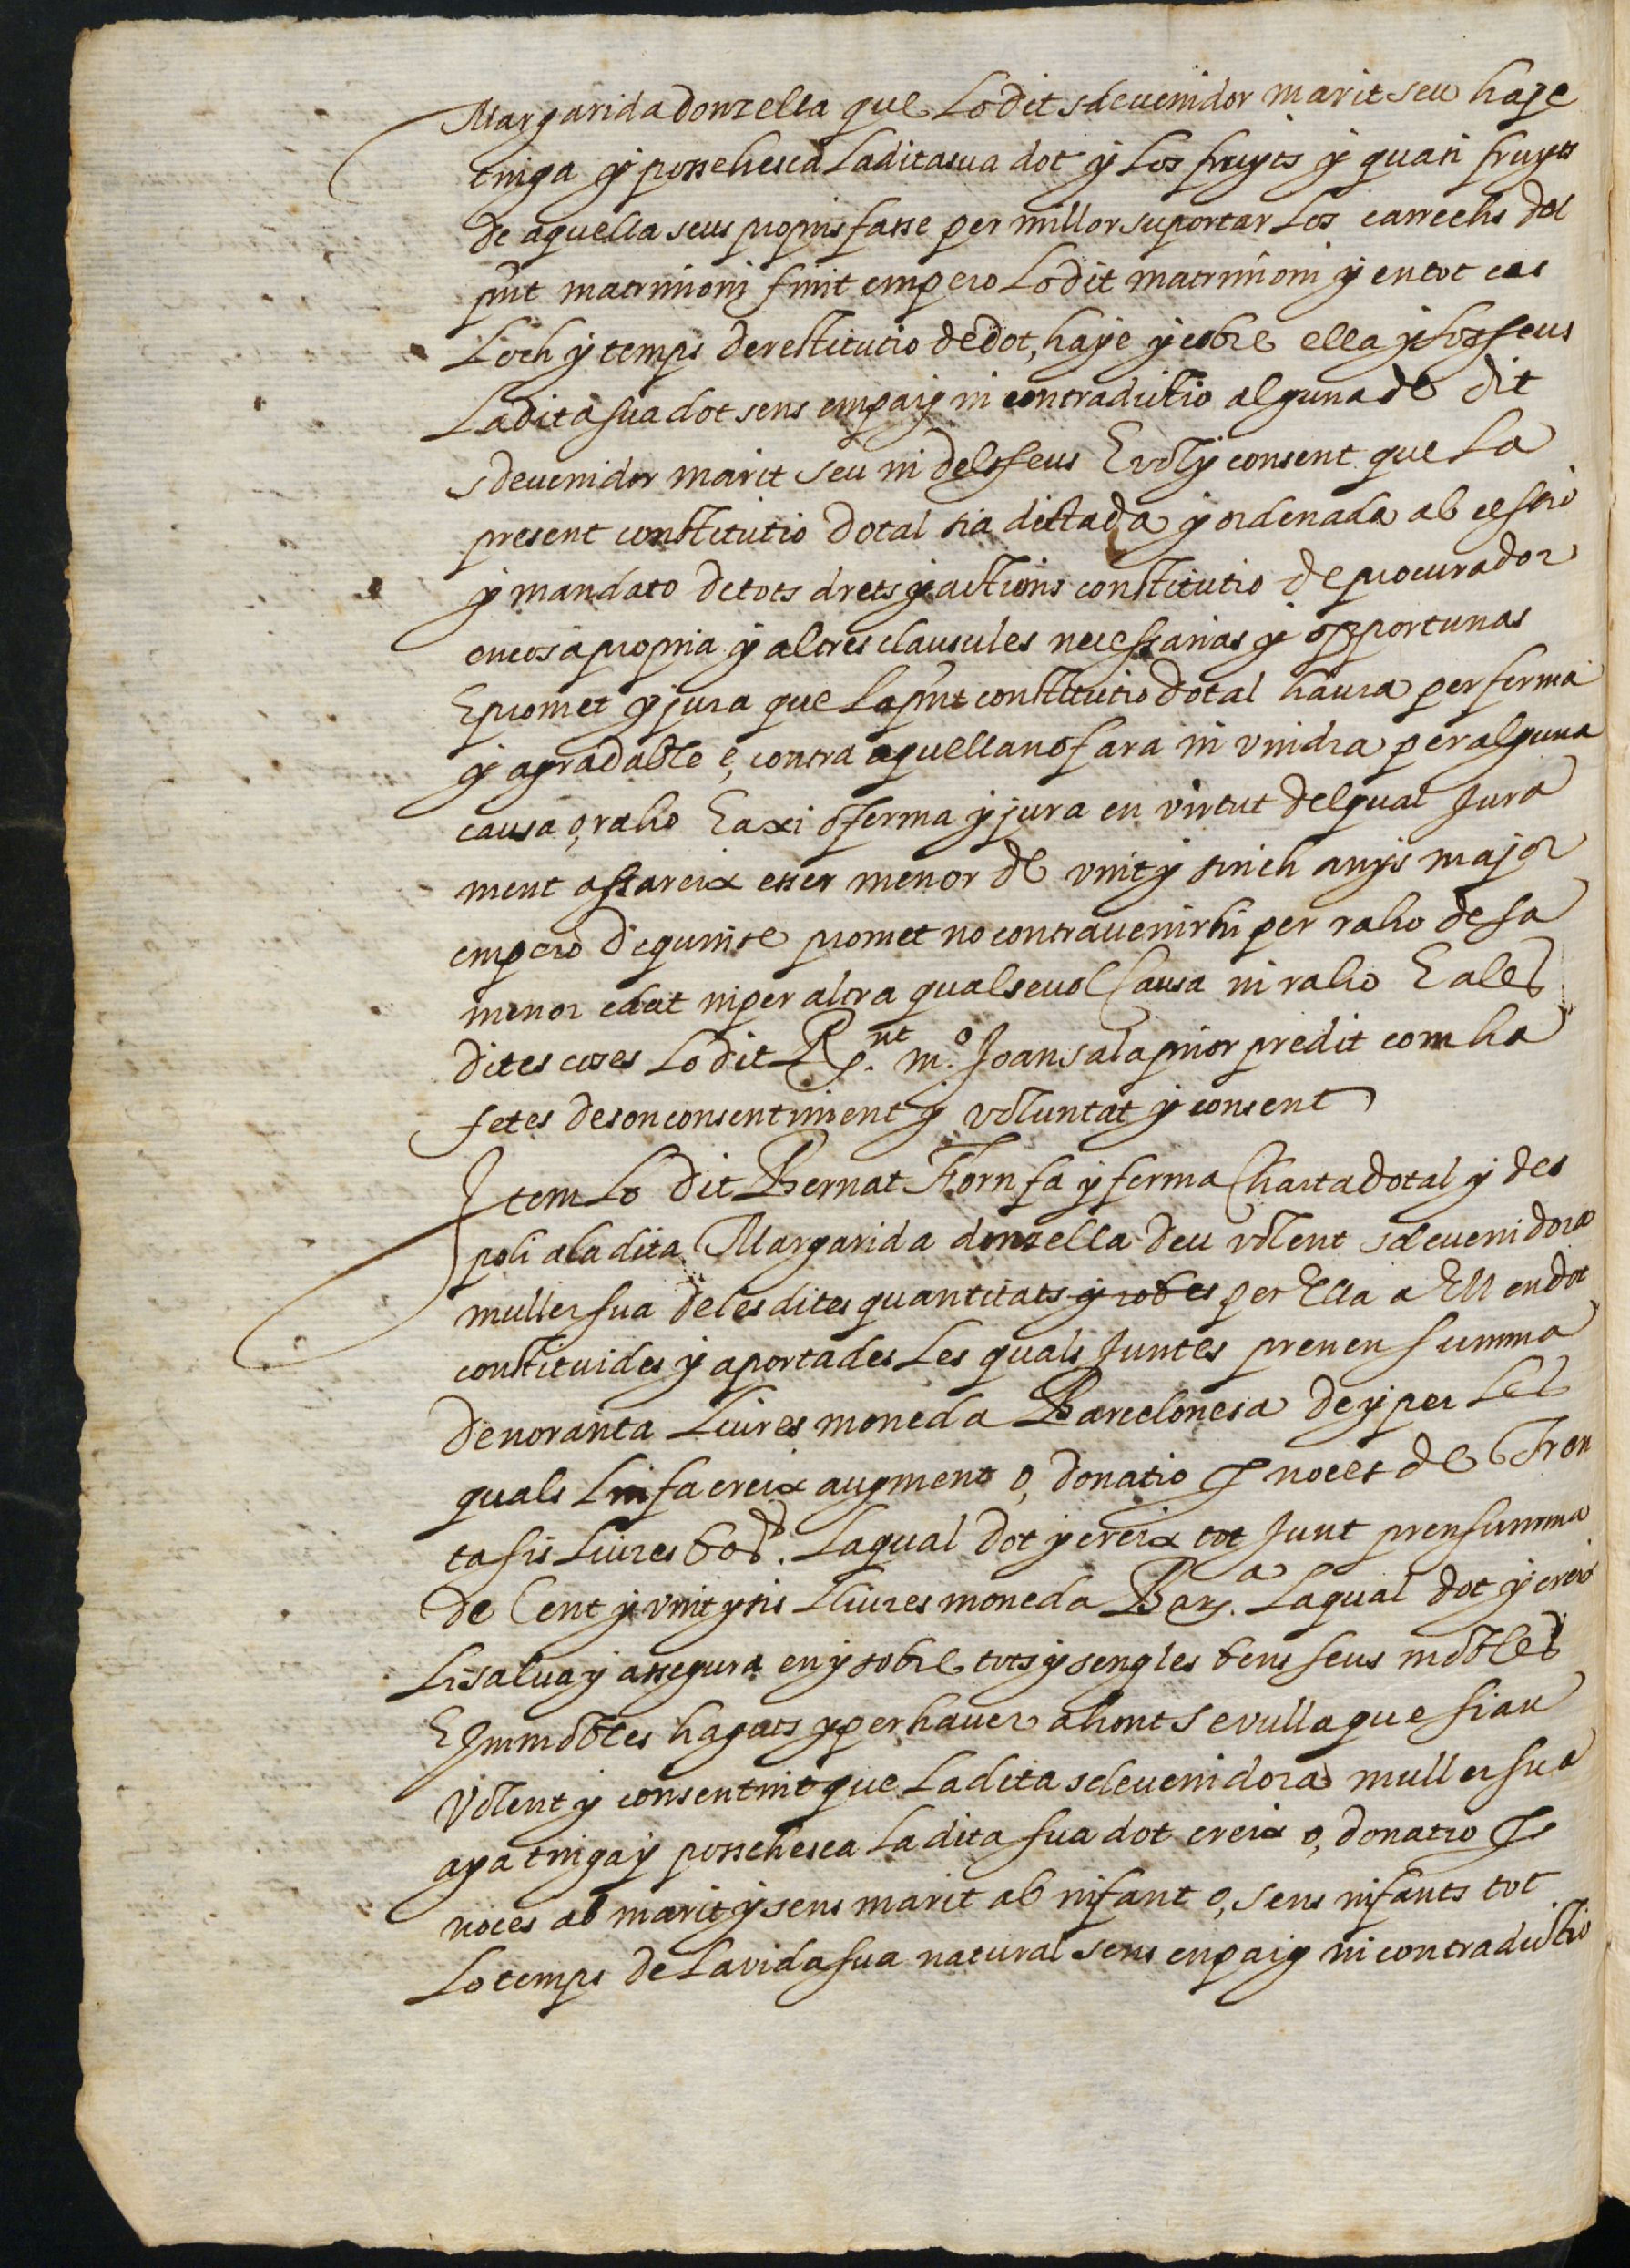 Margarida donzella que lo dit sdevenidor marit seu haye
tinga y possehesca la dita sua dot y los fruyts y quasi fruyts
de aquella seus propris fasse per millor suportar los carrechs del
pñt matrimoni finit empero lo dit matrimoni y en tot cas
loch y temps de restitutio de dot, haye y cobre ella y los seus
la dita sua dot sens empaig ni contradictio alguna de dit
sdevenidor marit seu ni dels seus E vol y consent que la
present constitutio dotal sia dictada y ordenada ab cessio
y mandato de tots drets y actions constitutio de procurador
en cosa propria y altres clausules necessarias y opportunas
E promet y jura que la pñt constitutio dotal haura per ferma
y agradable e, contra aquella no fara ni vindra per alguna
causa o, raho E axi o ferma y jura en virtut del qual jura
ment assareix esser menor de vint y sinch anys major
empero de quinse promet no contravenirhi per raho de sa
menor edat ni per altra qualsevol causa ni raho E a les
dites coses lo dit R.nt m.o Joan sala prior predit com ha
fetes de son consentiment y voluntat y consent
Item lo dit Bernat Forn fa y ferma Charta dotal y des
poli a la dita Margarida donzella deu volent sdevenidora
muller sua de les dites quantitats y robes per Ella a Ell en dot
constituides y aportades les quals juntes prenen summa
de noranta lliures moneda Barcelonesa de y per les
quals lin fa creix augment o, donatio p noces de Tren
ta sis lliures bar.s la qual dot y creix tot junt pren summa
de Cent y vint y sis lliures moneda Bar.a la qual dot y creix
li salva y assegura en y sobre tots y sengles bens seus mobles
E Immobles haguts y per haver ahont se vulla que sian
Volent y consentint que la dita sdevenidora muller sua
aya tinga y possehesca la dita sua dot creix o, donatio p
noces ab marit y sens marit ab infant o, sens infants tot
lo temps de la vida sua natural sens enpaig ni contradictio